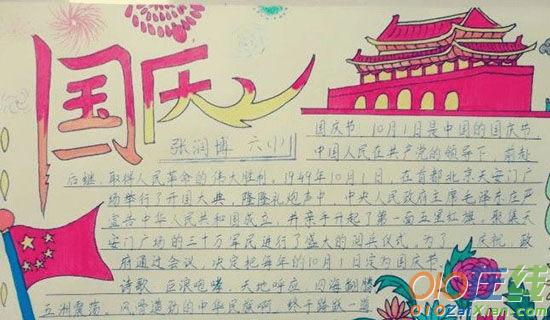 国庆
张润博 六(1)
国庆节 10月1日是中国的国庆节,
中国人民在共产党的领导下,前赴
后继,取得人民革命的伟大胜利,1949年10月1日,在首都北京天安门广
场举行了开国大典,隆隆礼炮声中,中央人民政府主席毛泽东庄严
宣告中华人民共和国成立,并亲手升起了第一面五星红旗,聚集天
安门广场的三十万军民进行了盛大的阅兵仪式,为了 庆祝,政
府通过会议,决定把每年的10月1日定为国庆节。
诗歌 巨浪咆哮,天地呼应,四海翻腾
五洲震荡,风雪造劲的中华民族啊
在线
ZaiXian.com